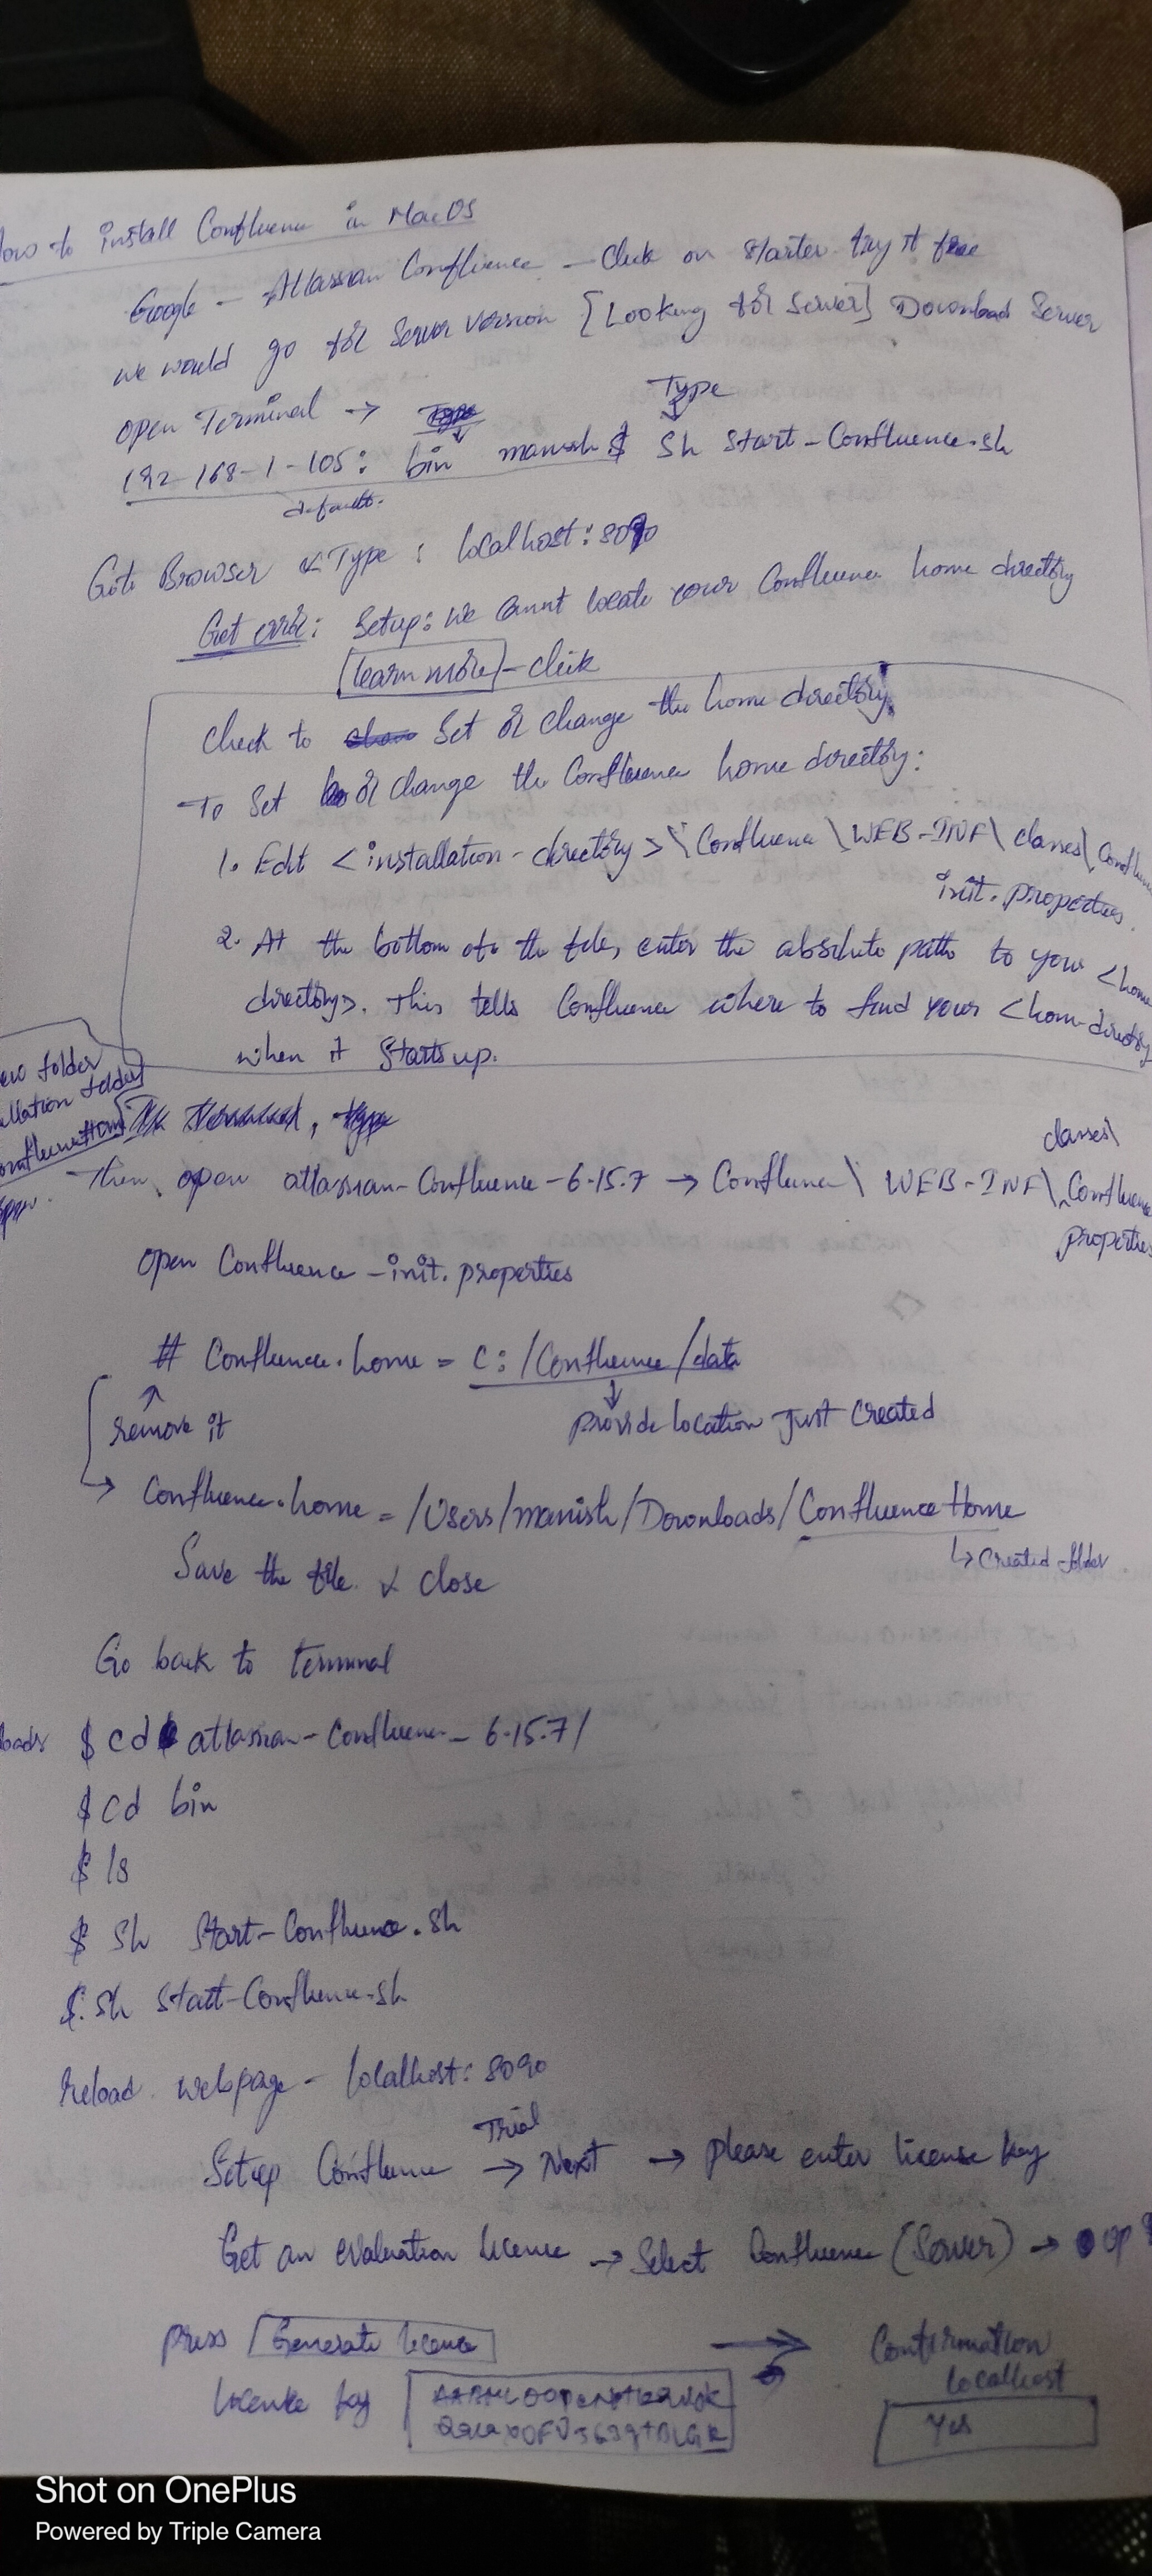 How to install Confluence in MacOS
Google - Atlassian Confluence - Click on starter try it free
we would go for Server version [Looking for server] Download Server
Type
open Terminal →
192-168-1-105: bin manish $ Sh Start-Confluence.sh
default.
Goto Browser & Type : localhost:8090
Get error: Setup: we cannot locate your Confluence home directory
[learn more] - click
Check to Set or change the home directory.
To Set or change the Confluence home directory:
1. Edit <installation-directory>\Confluence\WEB-INF\classes\Confluence
init.properties.
2. At the bottom of the file, enter the absolute path to your <home
directory>. This tells Confluence where to find your <home-directory
when it starts up.
new folder
allation folder
, type
classes\
Then open atlassian-Confluence-6.15.7 → Confluence\ WEB-INF\ Confluence
properties
open Confluence-init.properties
# Confluence.home = C:/Confluence/data
remove it
provide location just created
→ Confluence.home = /Users/manish/Downloads/ConfluenceHome
↳ Created folder.
Save the file & close
Go back to terminal
loads $ cd atlassian-Confluence-6.15.7/
$ cd bin
$ ls
$ Sh Start-Confluence.sh
$. Sh Start-Confluence.sh
Reload webpage - localhost: 8090
Trial
Setup Confluence → Next → please enter license key
Get an evaluation license → Select Confluence (Server) →
press [Generate licence] → Confirmation
localhost
license key
Yes
Shot on OnePlus
Powered by Triple Camera